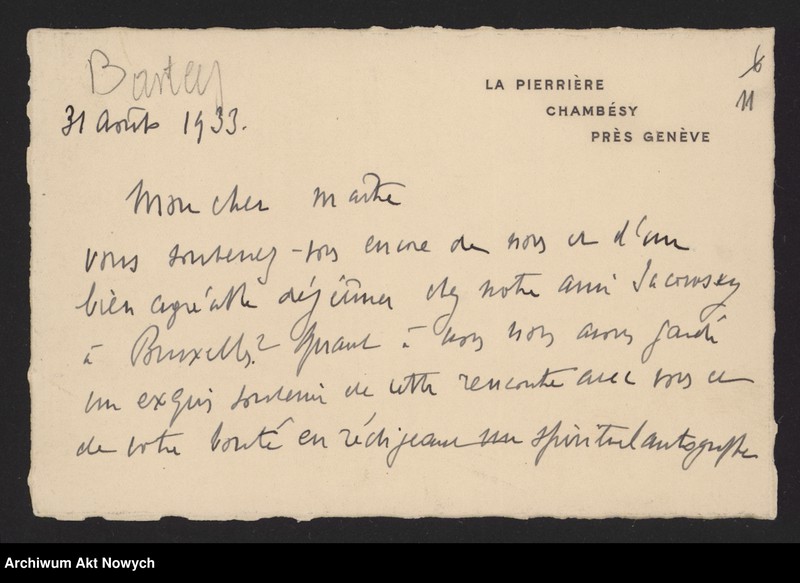 Bartel
LA PIERRIÈRE
CHAMBÉSY
PRÈS GENÈVE
6
11
31 août 1933.
Mon cher maître
vous souvenez-vous encore de nous et d'un
bien agréable déjeûner chez notre ami Jacowsky
à Bruxelles? Quant à nous nous avons gardé
un exquis souvenir de cette rencontre avec vous et
de votre bonté en rédigeant un spirituel autographe
Archiwum Akt Nowych